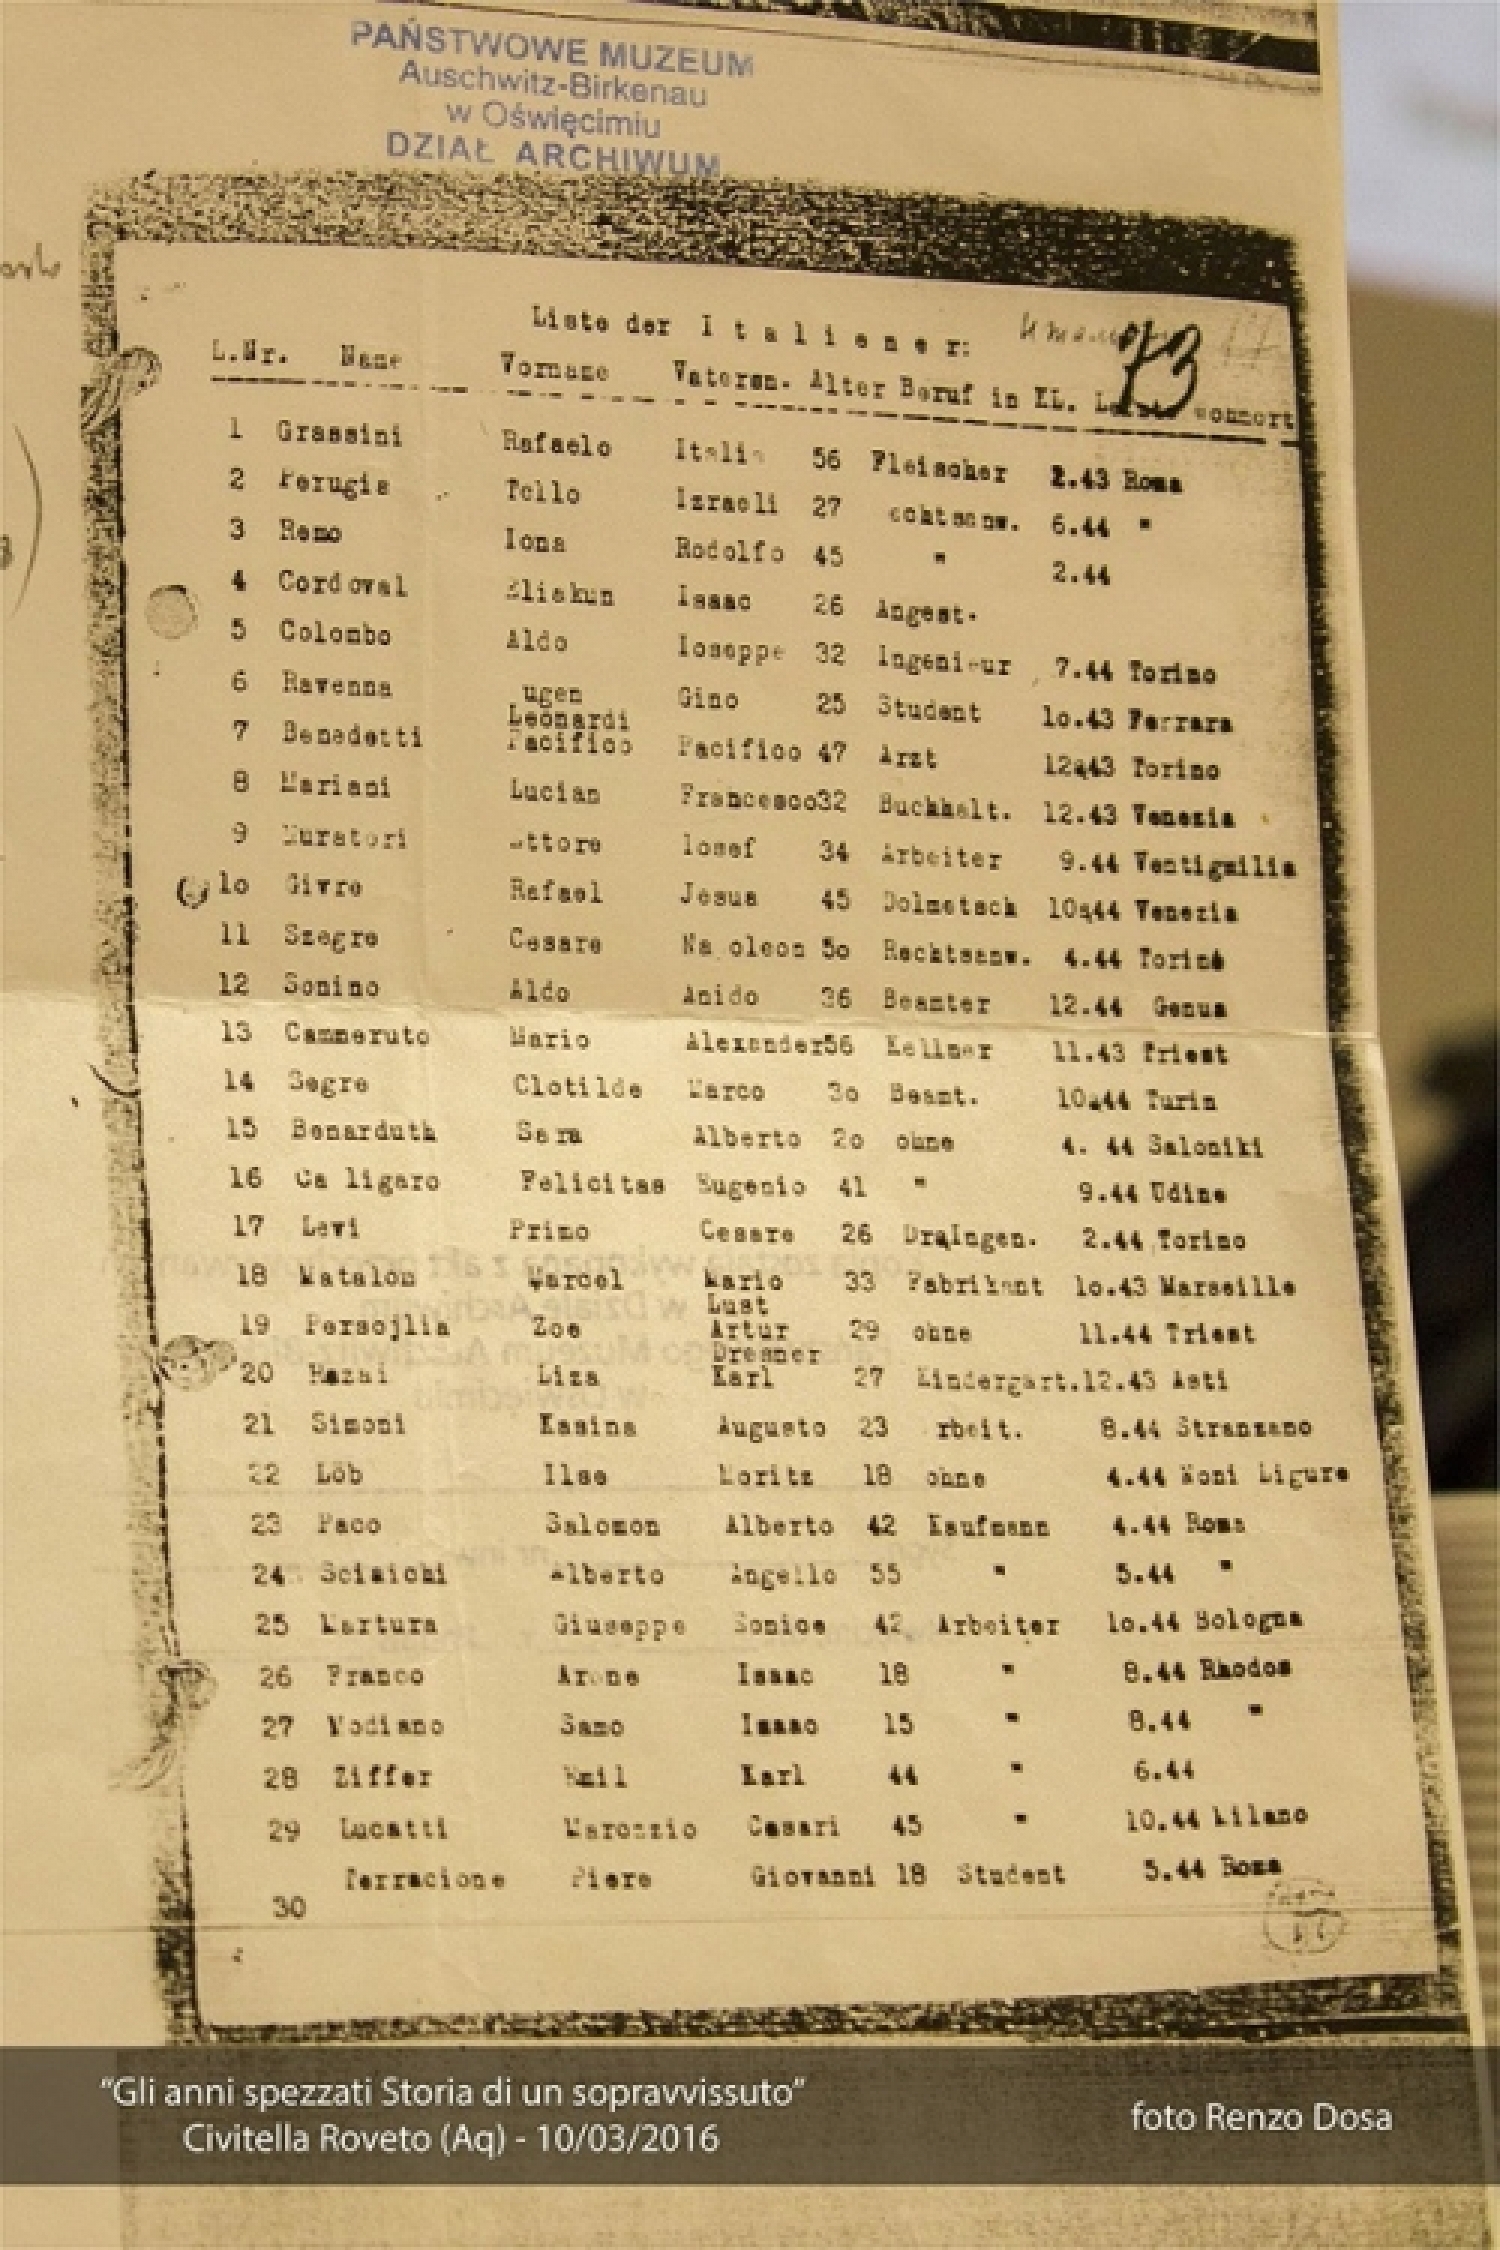 PAŃSTWOWE MUZEUM
Auschwitz-Birkenau
w Oświęcimiu
DZIAŁ ARCHIWUM
Liste der Italiener: 73
L.Nr. Name Vorname Vatersn. Alter Beruf in KL. wohnort
1 Grassini Rafaelo 56 Fleischer 2.43 Roma
2 Perugia Tello Izraeli 27 echtsanw. 6.44 "
3 Remo Iona Rodolfo 45 " 2.44
4 Cordoval Eliakun Isaac 26 Angest.
5 Colombo Aldo Ioseppe 32 Ingenieur 7.44 Torino
6 Ravenna ugen Gino 25 Student 10.43 Ferrara
7 Benedetti Leonardi Pacifico Pacifico 47 Arzt 12.43 Torino
8 Mariani Lucian Francesco 32 Buchhalt. 12.43 Venezia
9 Muratori ettore Iosef 34 Arbeiter 9.44 Ventigmilia
10 Givre Rafael Jesua 45 Dolmetsch 10.44 Venezia
11 Szegre Cesare Na oleon 50 Rechtsanw. 4.44 Torino
12 Sonino Aldo Anido 36 Beamter 12.44 Genua
13 Cammeruto Mario Alexander 56 Kellner 11.43 Triest
14 Segre Clotilde Marco 30 Beamt. 10.44 Turin
15 Benarduth Sara Alberto 20 ohne 4. 44 Saloniki
16 Ca ligaro Felicitas Eugenio 41 " 9.44 Udine
17 Levi Primo Cesare 26 Dr.Ingen. 2.44 Torino
18 Matalon Marcel Mario 33 Fabrikant 10.43 Marseille
Lust
19 Persojlia Zoe Artur 29 ohne 11.44 Triest
Dresner
20 Hazai Liza Karl 27 Kindergart. 12.43 Asti
21 Simoni Kasina Augusto 23 rbeit. 8.44 Stranzano
22 Löb Ilse Moritz 18 ohne 4.44 Noni Ligure
23 Paco Salomon Alberto 42 Kaufmann 4.44 Roma
24 Alberto Angello 55 " 5.44 "
25 Martura Giuseppe Sonice 42 Arbeiter 10.44 Bologna
26 Franco Arone Isaac 18 " 8.44 Rhodos
27 Modiano Samo Isaac 15 " 8.44 "
28 Ziffer Emil Karl 44 " 6.44
29 Lucatti Maronzio Cesari 45 " 10.44 Milano
30 Terracione Piere Giovanni 18 Student 5.44 Roma
"Gli anni spezzati Storia di un sopravvissuto"
Civitella Roveto (Aq) - 10/03/2016
foto Renzo Dosa